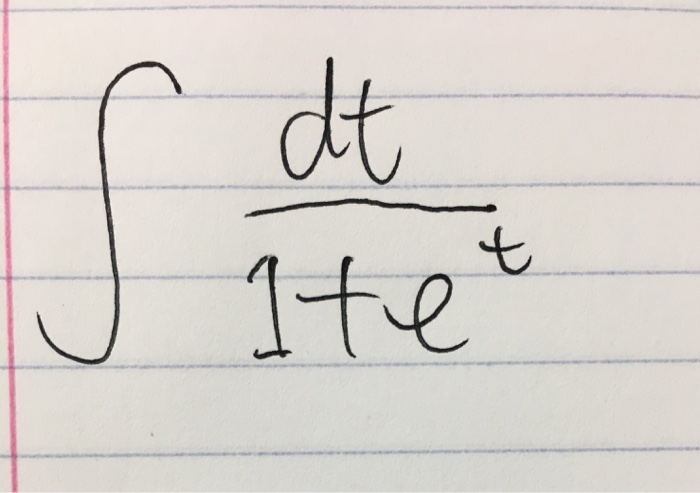 ∫ dt / (1+e^t)